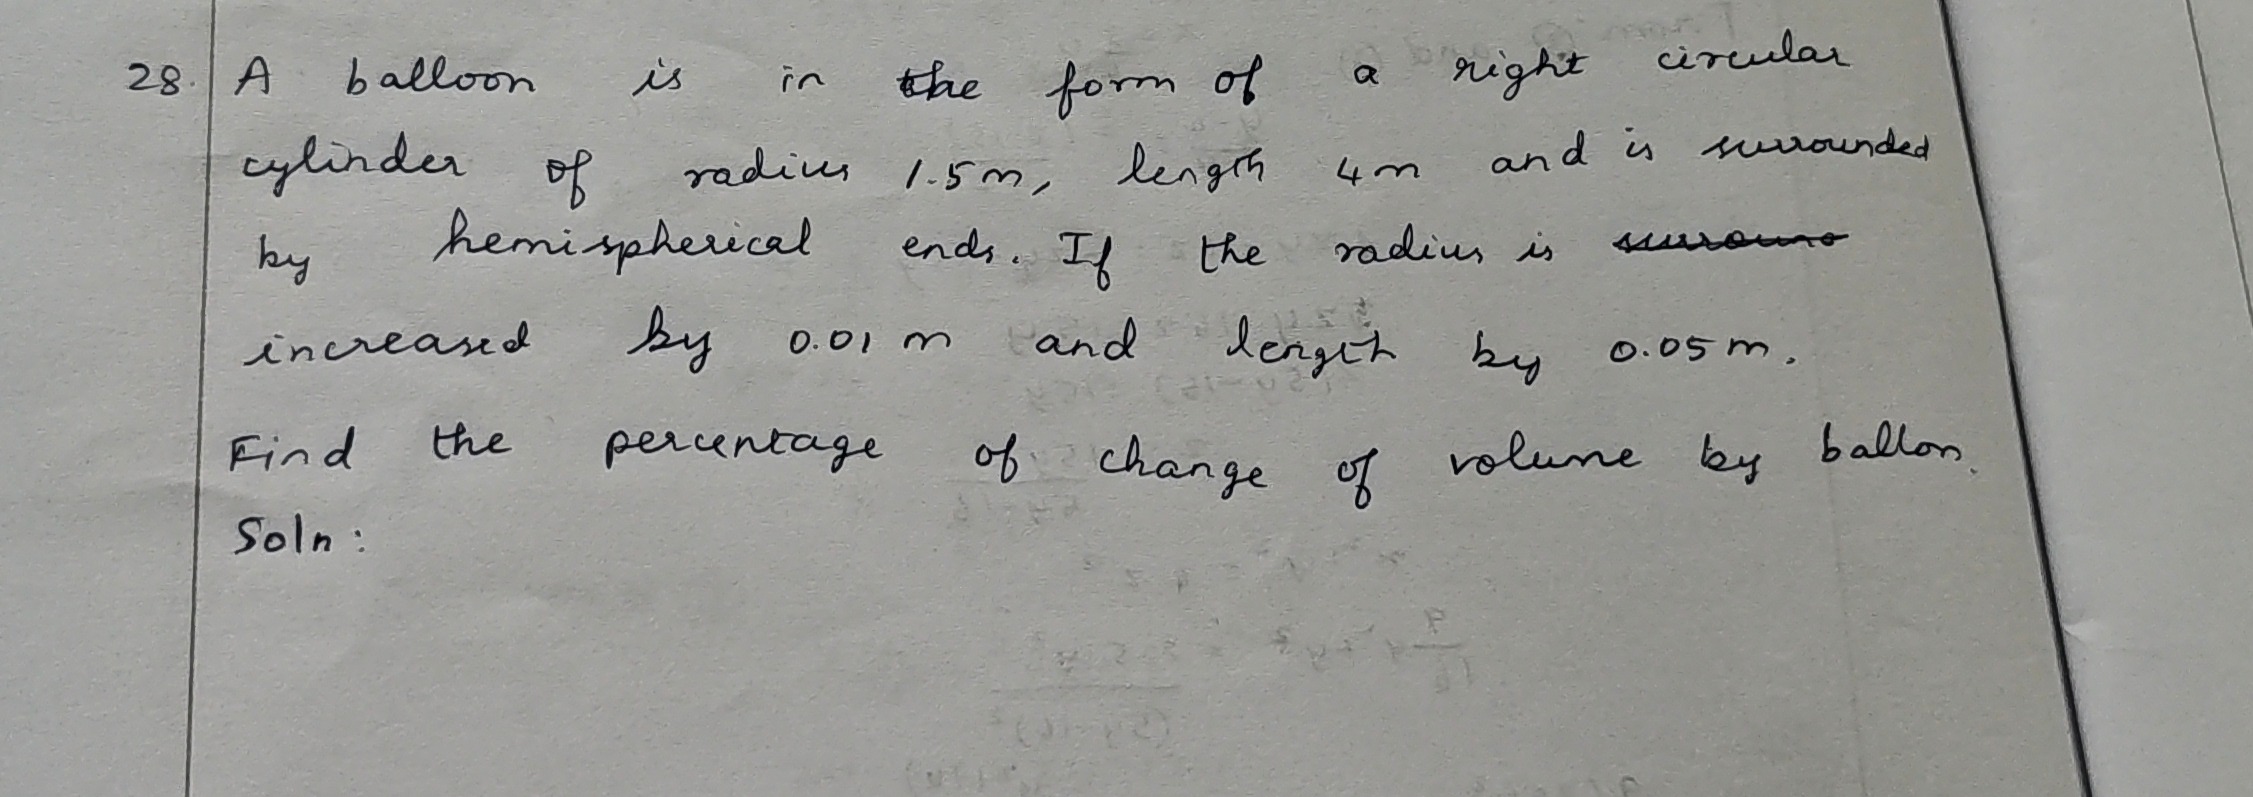 28. A balloon is in the form of a right circular
cylinder of radius 1.5m, length 4m and is surrounded
by hemispherical ends. If the radius is
increased by 0.01 m and length by 0.05 m.
Find the percentage of change of volume by ballon.
Soln: